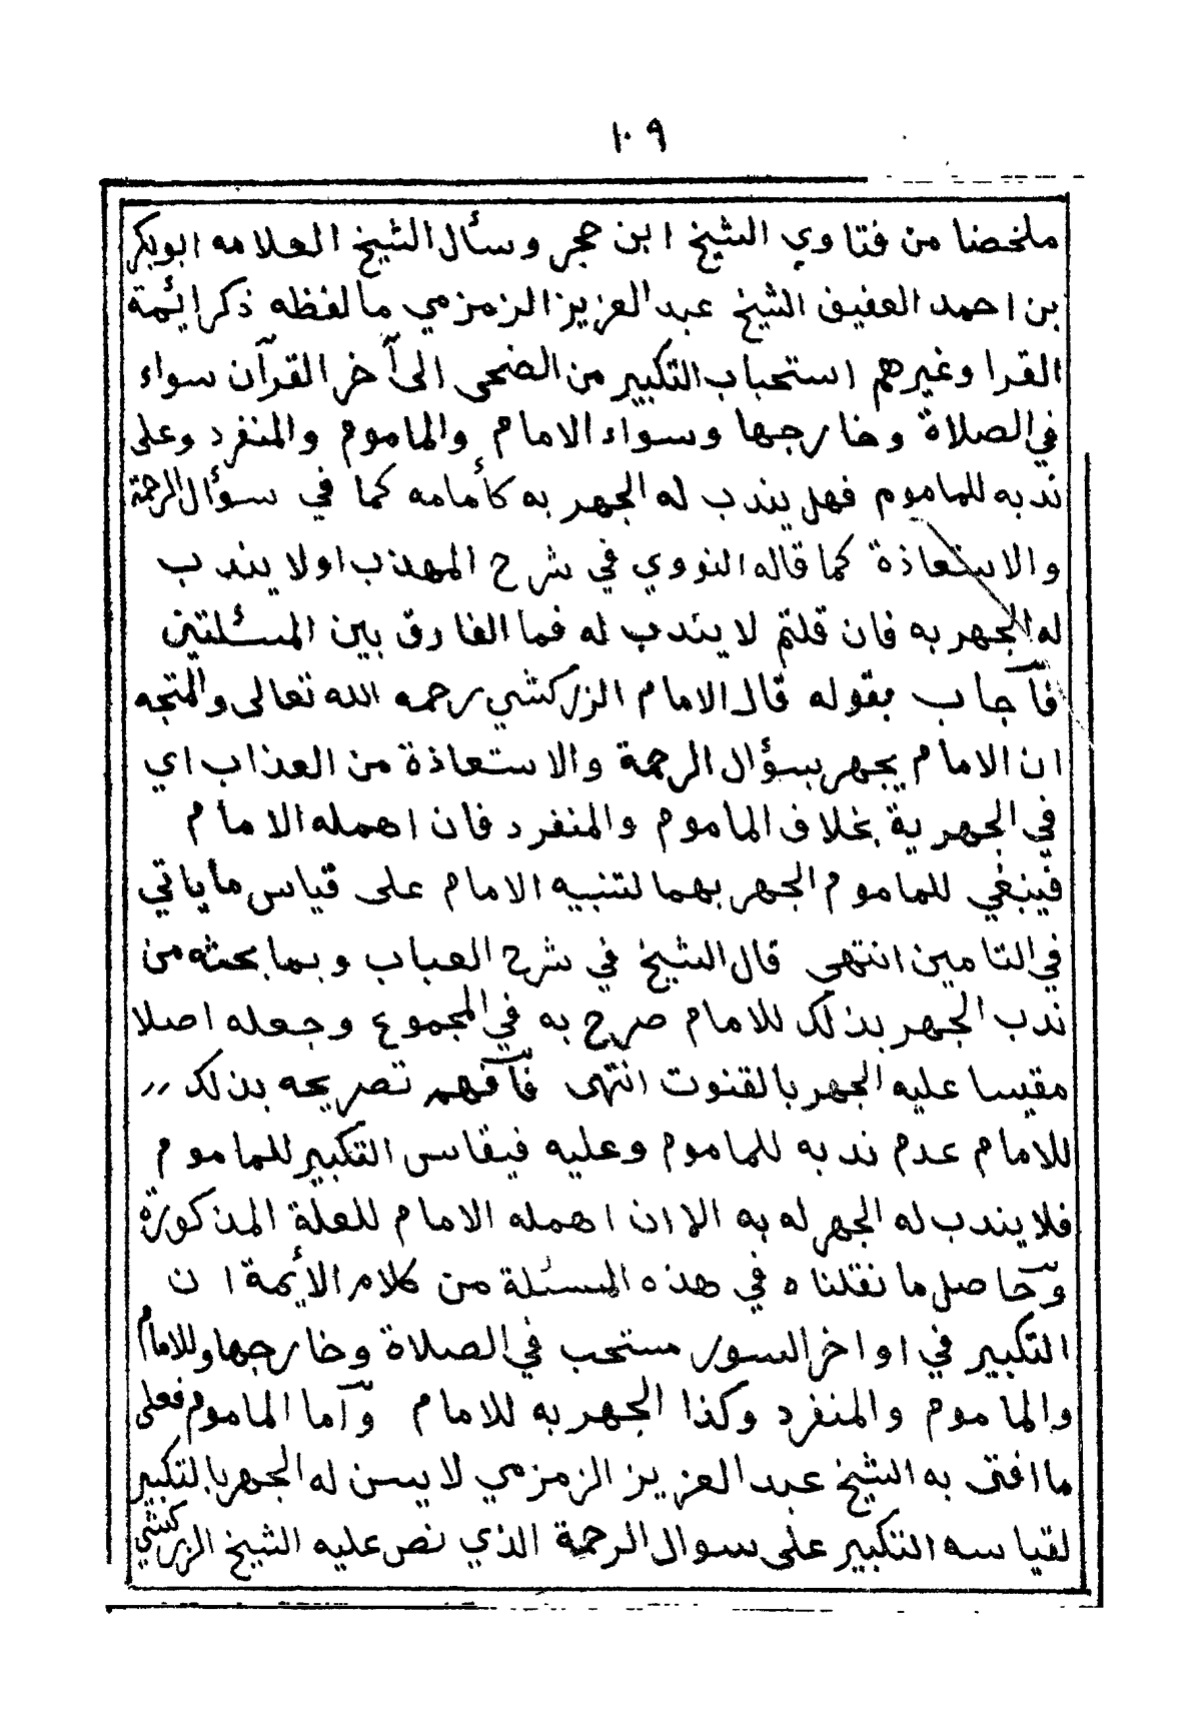 ١٠٩
ملخصا من فتاوي الشيخ ابن حجر وسأل الشيخ العلامه ابوبكر
بن احمد العفيف الشيخ عبد العزيز الزمزمي ما لفظه ذكر ائمة
القرا وغيرهم استحباب التكبير من الضحى الى آخر القرآن سواء
في الصلاة وخارجها وسواء الامام والماموم والمنفرد وعلى
ندبه للماموم فهل يندب له الجهر به كأمامه كما في سؤال الرحمة
والاستعاذة كما قاله النووي في شرح المهذب اولا يندب
له الجهر به فان قلتم لا يندب له فما الفارق بين المسئلتين
فآجاب بقوله قال الامام الزركشي رحمه الله تعالى والمتجه
ان الامام يجهر بسؤال الرحمة والاستعاذة من العذاب اي
في الجهرية بخلاف الماموم والمنفرد فان اهمله الامام
فينبغي للماموم الجهر بهما لتنبيه الامام على قياس ما ياتي
في التامين انتهى قال الشيخ في شرح العباب وبما بحثه من
ندب الجهر بذلك للامام صرح به في المجموع وجعله اصلا
مقيسا عليه الجهر بالقنوت انتهى فآفهم تصريحه بذلك
للامام عدم ندبه للماموم وعليه فيقاس التكبير للماموم
فلا يندب له الجهر له به الا ان اهمله الامام للعلة المذكورة
وحاصل ما نقلناه في هذه المسئلة من كلام الأئمة ان
التكبير في اواخر السور مستحب في الصلاة وخارجها وللامام
والماموم والمنفرد وكذا الجهر به للامام وآما الماموم فعلى
ما افتى به الشيخ عبد العزيز الزمزمي لا يسن له الجهر بالتكبير
لقياسه التكبير على سوال الرحمة الذي نص عليه الشيخ الزركشي